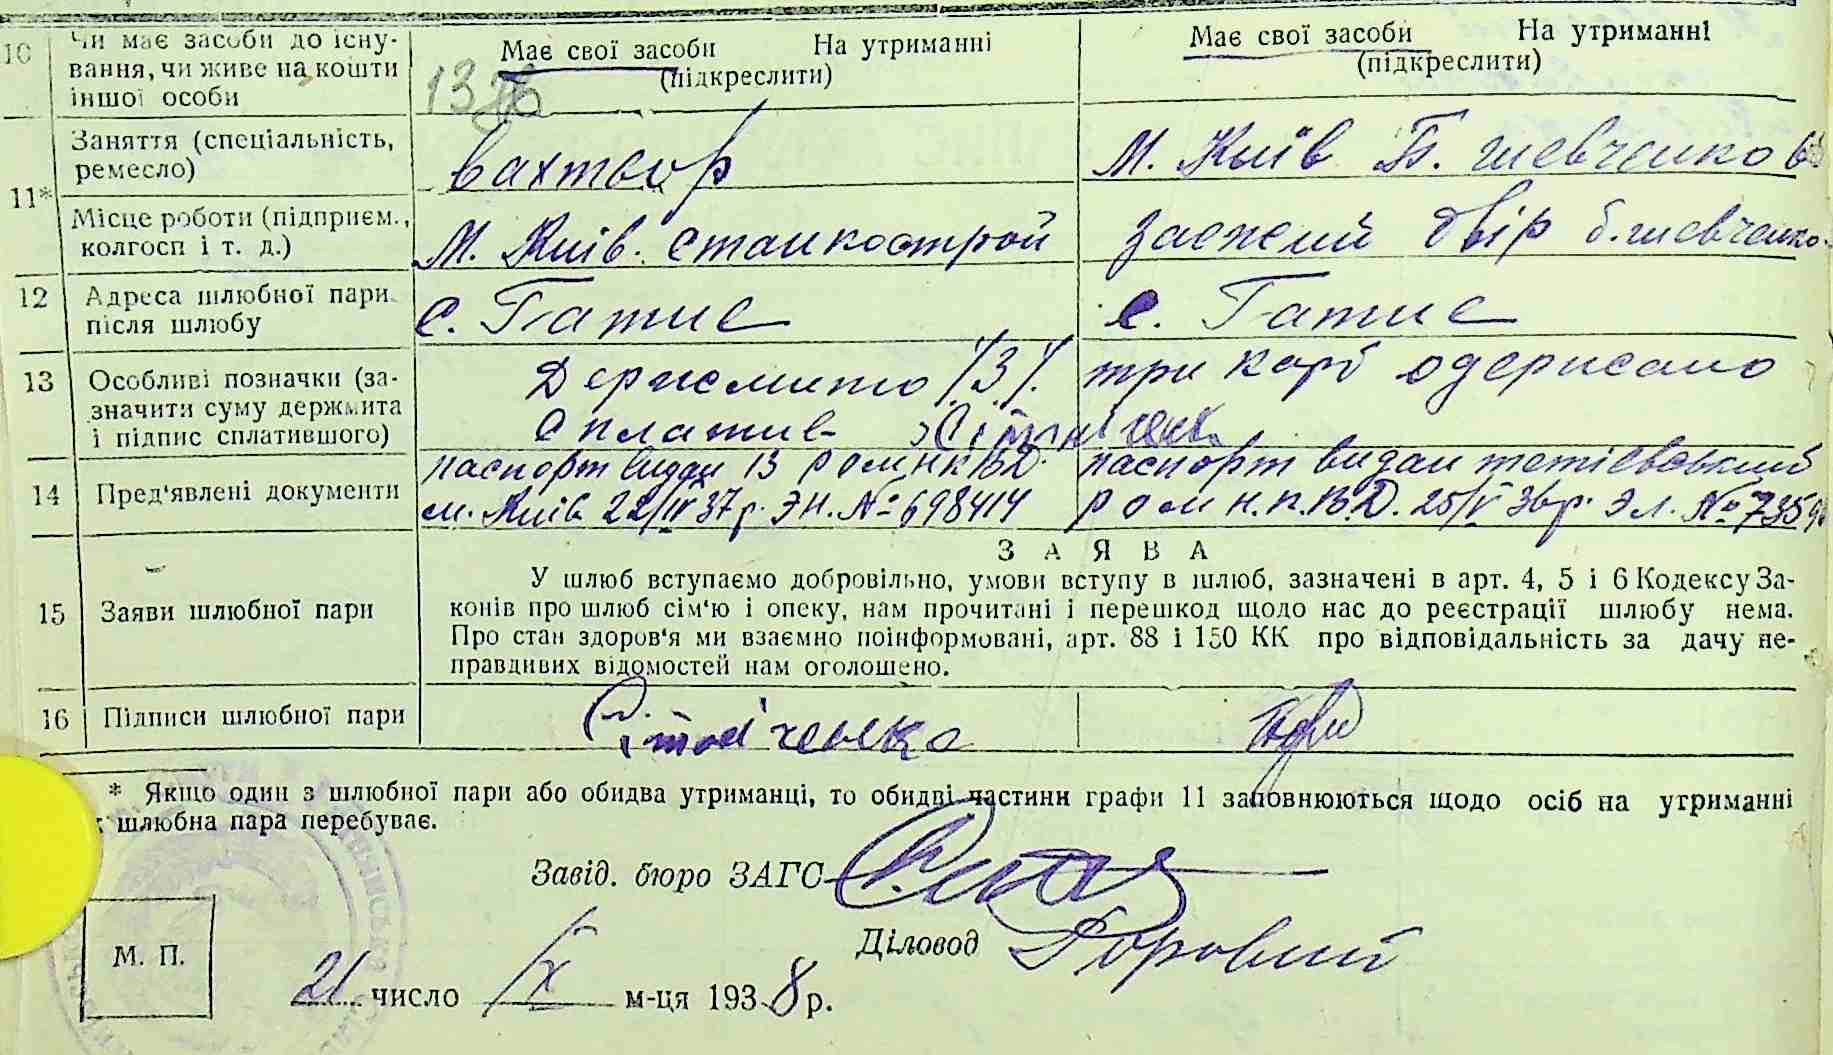 10 Чи має засоби до існу-
вання, чи живе на кошти
іншої особи
Має свої засоби На утриманні
(підкреслити)
Має свої засоби На утриманні
(підкреслити)
11* Заняття (спеціальність,
ремесло)
вахтьор
м. Київ Б. Шевченков
Місце роботи (підприєм.,
колгосп і т. д.)
м. Київ. Станкострой
двір б. Шевченко.
12 Адреса шлюбної пари
після шлюбу
с. Гатне
с. Гатне
13 Особливі позначки (за-
значити суму держмита
і підпис сплатившого)
Держмито /3/. три карб одержано
Сплатив
14 Пред'явлені документи
паспорт видан 13 р о м НКВД.
м. Київ 22/IV 37 р. ЭН. № 698414
паспорт видан тетіевський
р о м Н.К.В.Д. 25/V 36 р. Эл. № 7359
15 Заяви шлюбної пари
ЗАЯВА
У шлюб вступаємо добровільно, умови вступу в шлюб, зазначені в арт. 4, 5 і 6 Кодексу За-
конів про шлюб сім'ю і опеку, нам прочитані і перешкод щодо нас до реєстрації шлюбу нема.
Про стан здоров'я ми взаємно поінформовані, арт. 88 і 150 КК про відповідальність за дачу не-
правдивих відомостей нам оголошено.
16 Підписи шлюбної пари
* Якщо один з шлюбної пари або обидва утриманці, то обидві частини графи 11 заповнюються щодо осіб на утриманні
шлюбна пара перебуває.
Завід. бюро ЗАГС
Діловод
М. П.
21 число IX м-ця 1938 р.